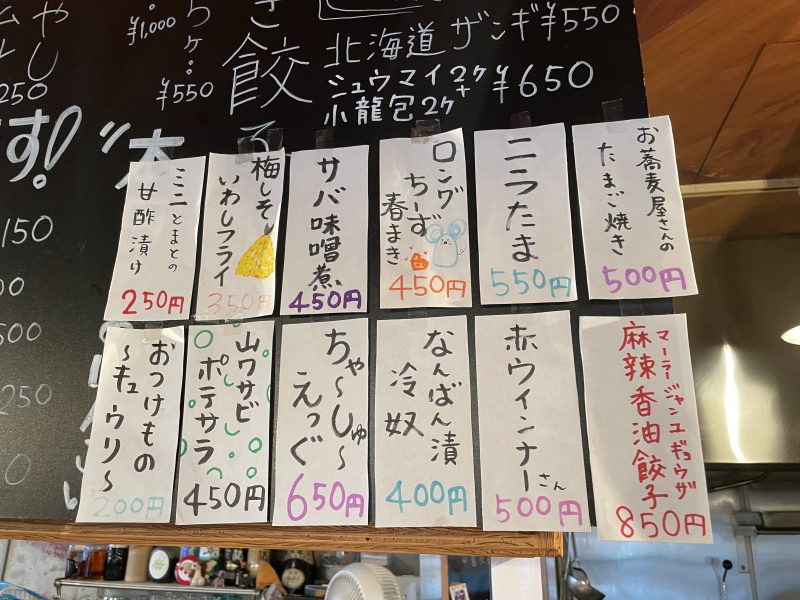 ¥1,000
ちケ。
¥550
き餃子
北海道ザンギ¥550
シュウマイ2ケ
+
小龍包2ケ
¥650
250
す!
150
500
250
お蕎麦屋さんの
たまご焼き
500円
ニラたま
550円
ロング
ちーず
春まき
450円
サバ味噌煮
450円
梅しそ
いわしフライ
350円
ミニとまとの
甘酢漬け
250円
マーラージャンユギョウザ
麻辣香油餃子
850円
赤ウィンナーさん
500円
なんばん漬
冷奴
400円
ちゃ〜しゅ〜
えっぐ
650円
山ワサビ
ポテサラ
450円
おつけもの
〜キュウリ〜
200円